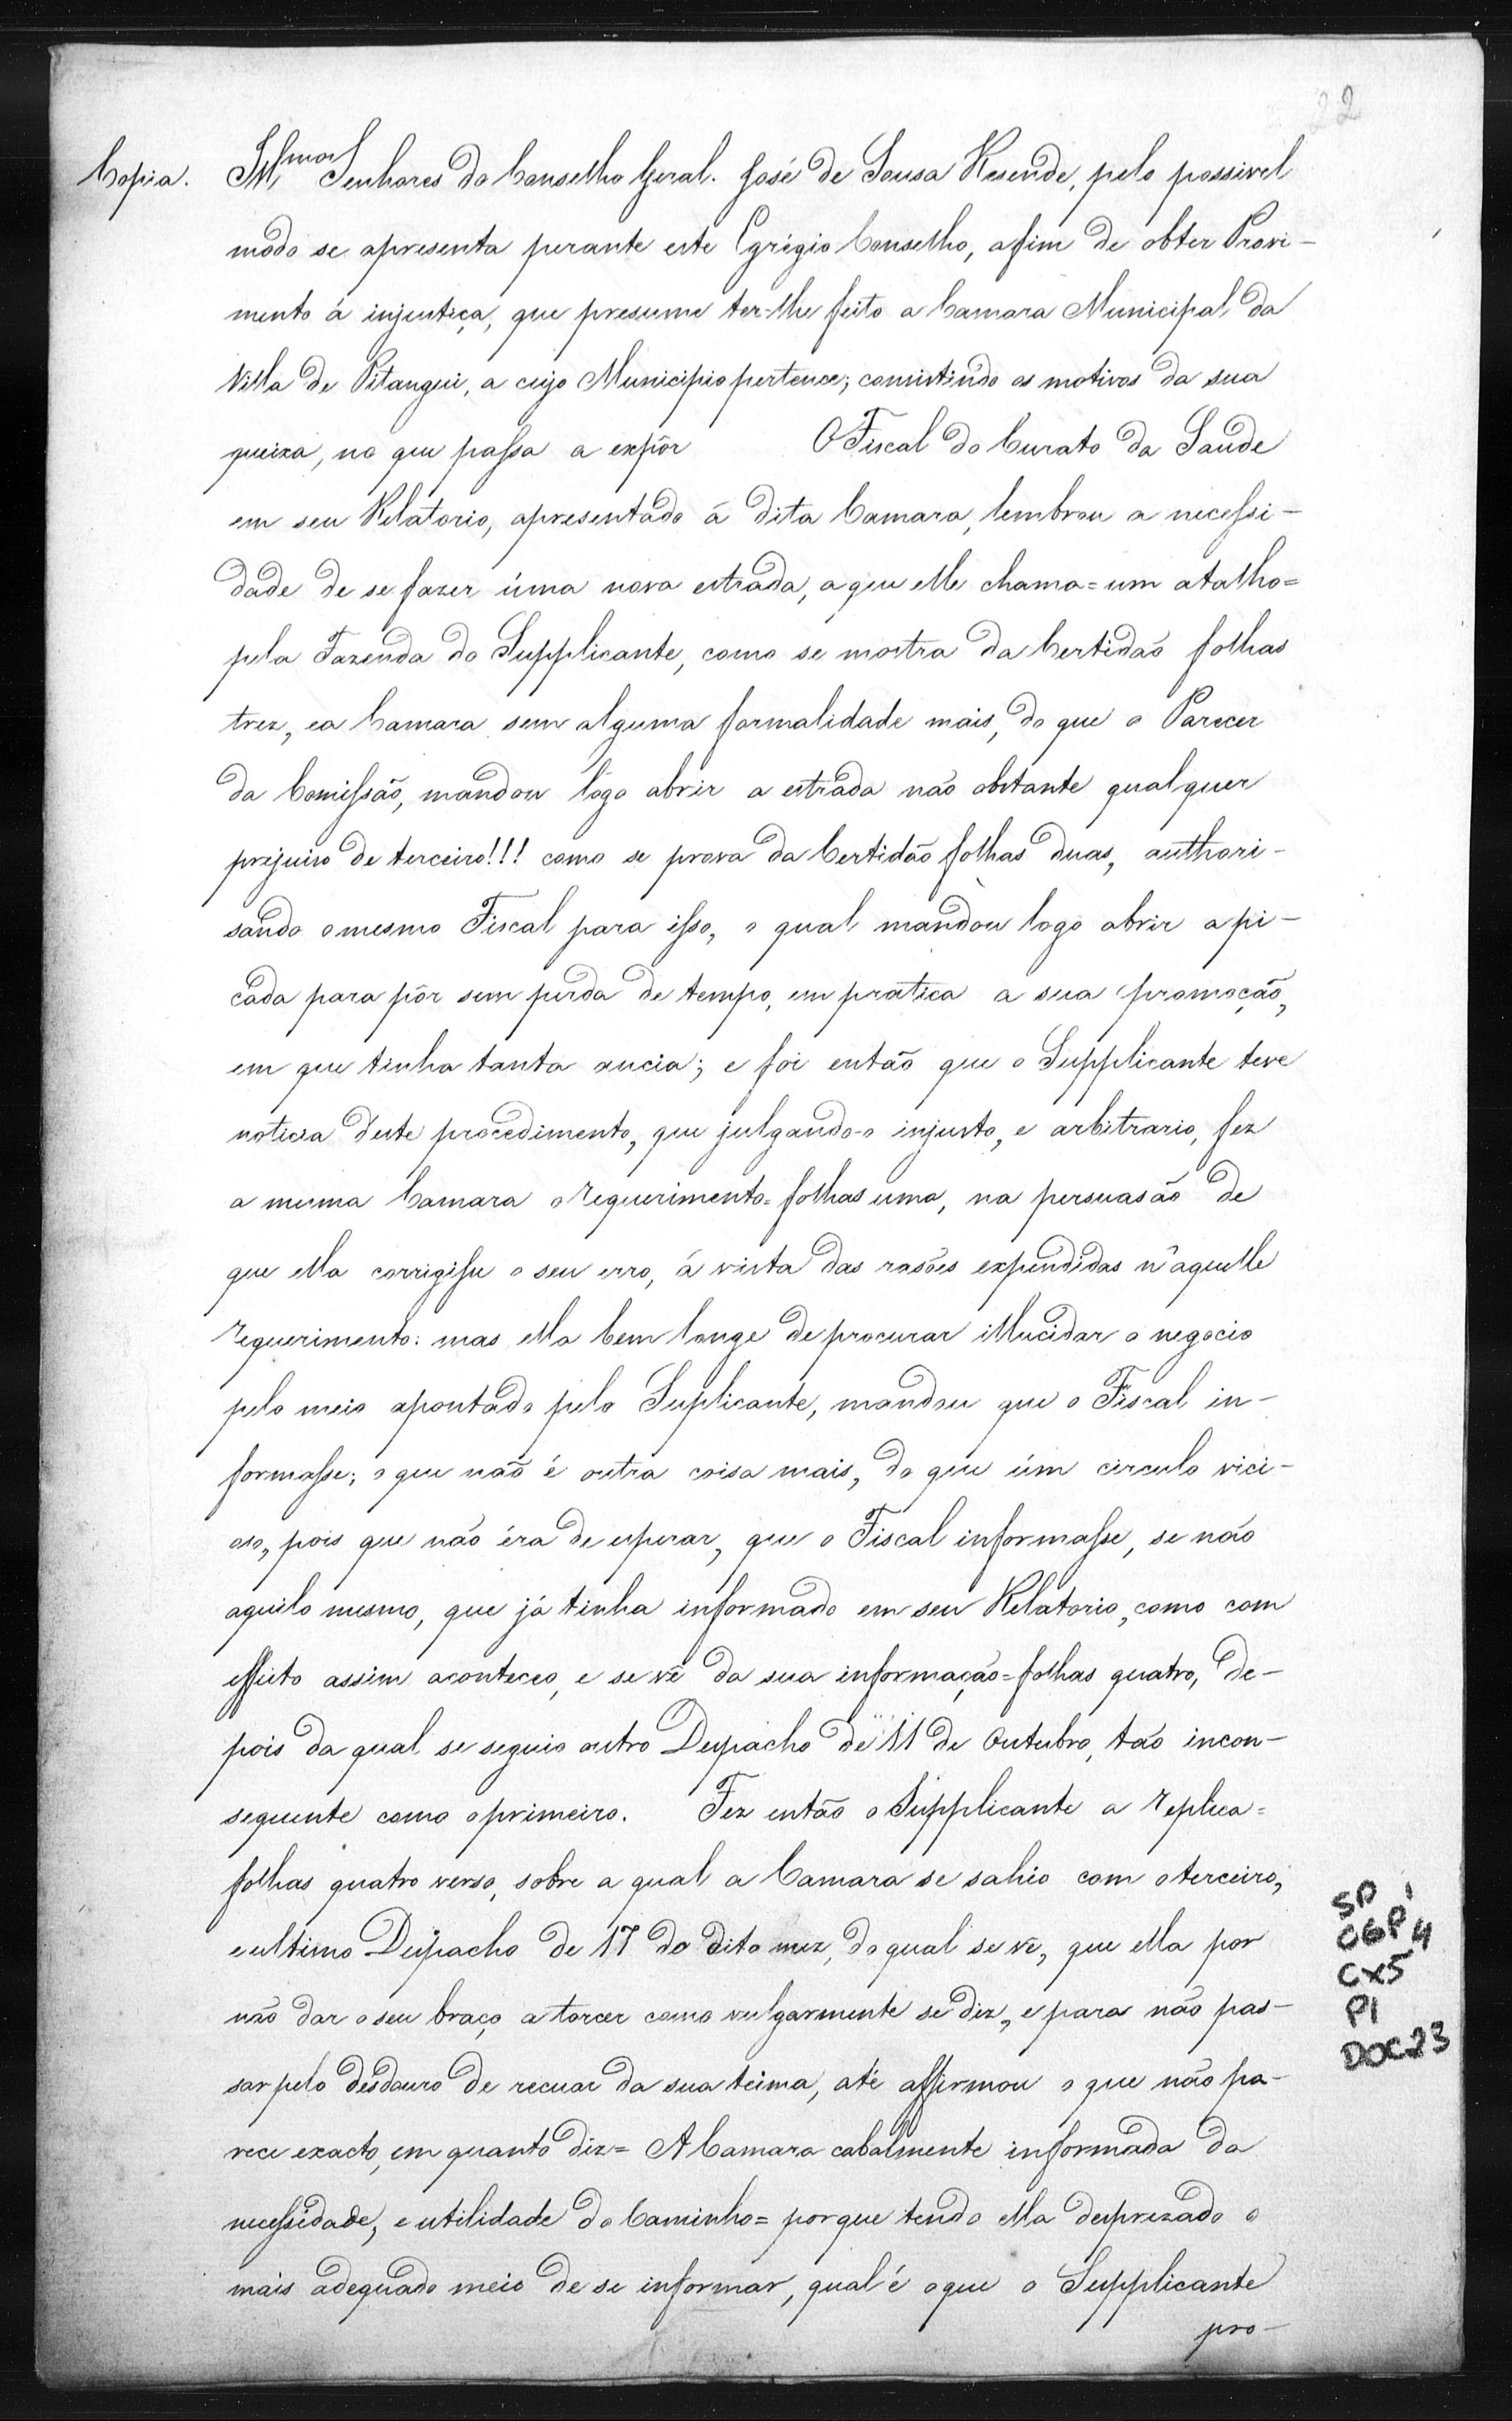 22
Copia. Illmos Senhores do Conselho Geral. José de Sousa Resende, pelo possivel
modo se apresenta perante este Egrégio Conselho, afim de obter Provi-
mento á injustiça, que presume ter-lhe feito a Camara Municipal da
Villa de Pitangui, a cujo Municipio pertence; consistindo os motivos da sua
queixa, no que passa a expôr O Fiscal do Curato da Saude
em seu Relatorio, apresentado á dita Camara, lembrou a necessi-
dade de se fazer úma nova estrada, a que elle chama=um atalho=
pela Fazenda do Supplicante, como se mostra da Certidão folhas
trez, ea Camara sem alguma formalidade mais, do que o Parecer
da Comissão, mandou lôgo abrir a estrada não obstante qualquer
prejuiso de terceiro!!! como se prova da Certidão folhas duas, authori-
sando o mesmo Fiscal para isso, o qual mandou logo abrir a pi-
cada para pôr sem perda de tempo, em pratica a sua promoção,
em que tinha tanta ancia; e foi então que o Supplicante teve
noticia d'este procedimento, que julgando-o injusto, e arbitrario, fez
a mesma Camara o requerimento=folhas uma, na persuasão de
que ella corrigisse o seu erro, á vista das rasões expendidas n'aquelle
requerimento: mas ella bem longe de procurar illucidar o negocio
pelo meio apontado pelo Suplicante, mandou que o Fiscal in-
formasse; o que não é outra coisa mais, do que úm circulo vici-
oso, pois que não éra de esperar, que o Fiscal informasse, se não
aquilo mesmo, que já tinha informado em seu Relatorio, como com
effeito assim aconteceo, e se vê da sua informação=folhas quatro, de-
pois da qual se seguio outro Despacho de 11 de Outubro, tão incon-
sequente como o primeiro. Fez então o Supplicante a replica=
folhas quatro verso, sobre a qual a Camara se sahio com o terceiro,
e ultimo Despacho de 17 do dito mez, do qual se vê, que ella por
não dar o seu braço a torcer como vulgarmente se diz, e para não pas-
sar pelo desdouro de recuar da sua teima, até affirmou o que não pa-
rece exacto, em quanto diz= A Camara cabalmente informada da
necessidade, e utilidade do Caminho= porque tendo ella desprezado o
mais adequado meio de se informar, qual é o que o Supplicante
pro-
SP
CGP 4
CX5
P1
DOC23